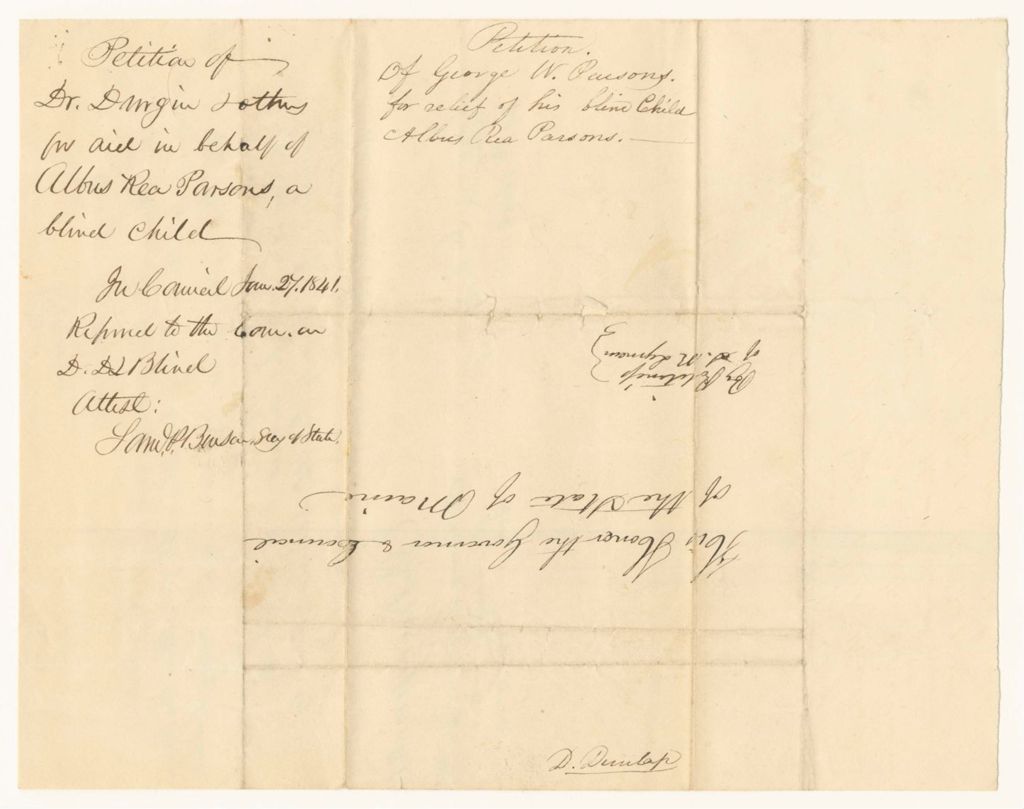 Petition of
Dr. Durgin & others
for aid in behalf of
Albus Rea Parsons, a
blind child
In Council Jan. 27. 1841.
Referred to the Com. on
D. D & Blind
Attest:
Saml. P. Benson, Secy of State.
Petition.
Of George W. Parsons.
for relief of his blind Child
Albus Rea Parsons.—
of S. R. Lyman
His Honor the Governor & Council
of the State of Maine
D. Dunlap